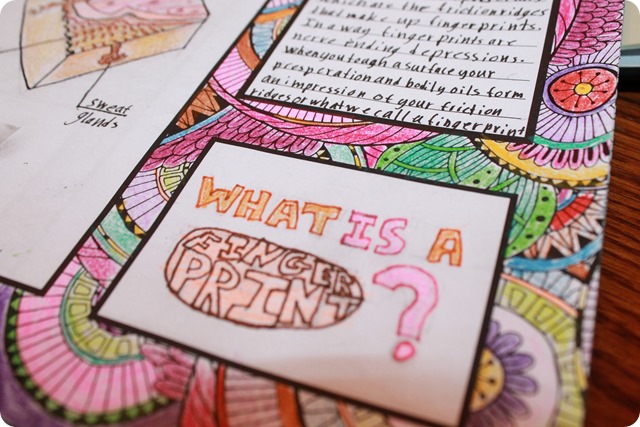 sweat
glands
which are the friction ridges
that make up fingerprints.
In a way fingerprints are
nerve ending depressions.
When you tough a surface your
presperation and bodily oils form
an impression of your friction
ridges or what we call a fingerprint
WHAT IS A
FINGER
PRINT ?